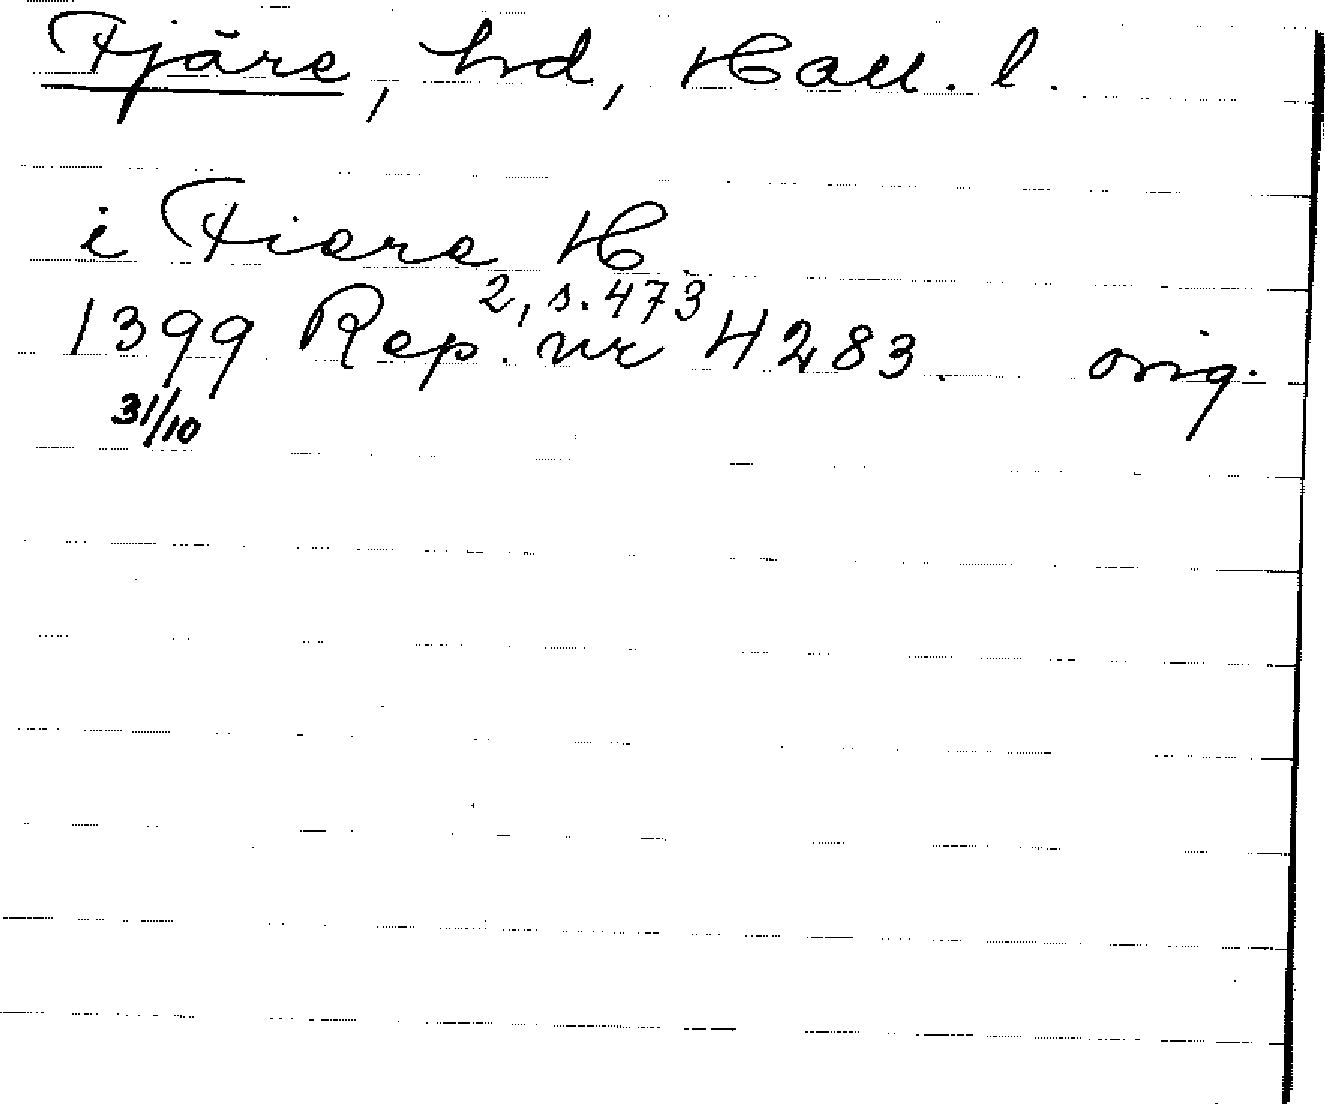 Fjäre, hd, Hall. l.
i Fiæræ H
2, s. 473
1399 Rep. nr 4283. orig.
31/10